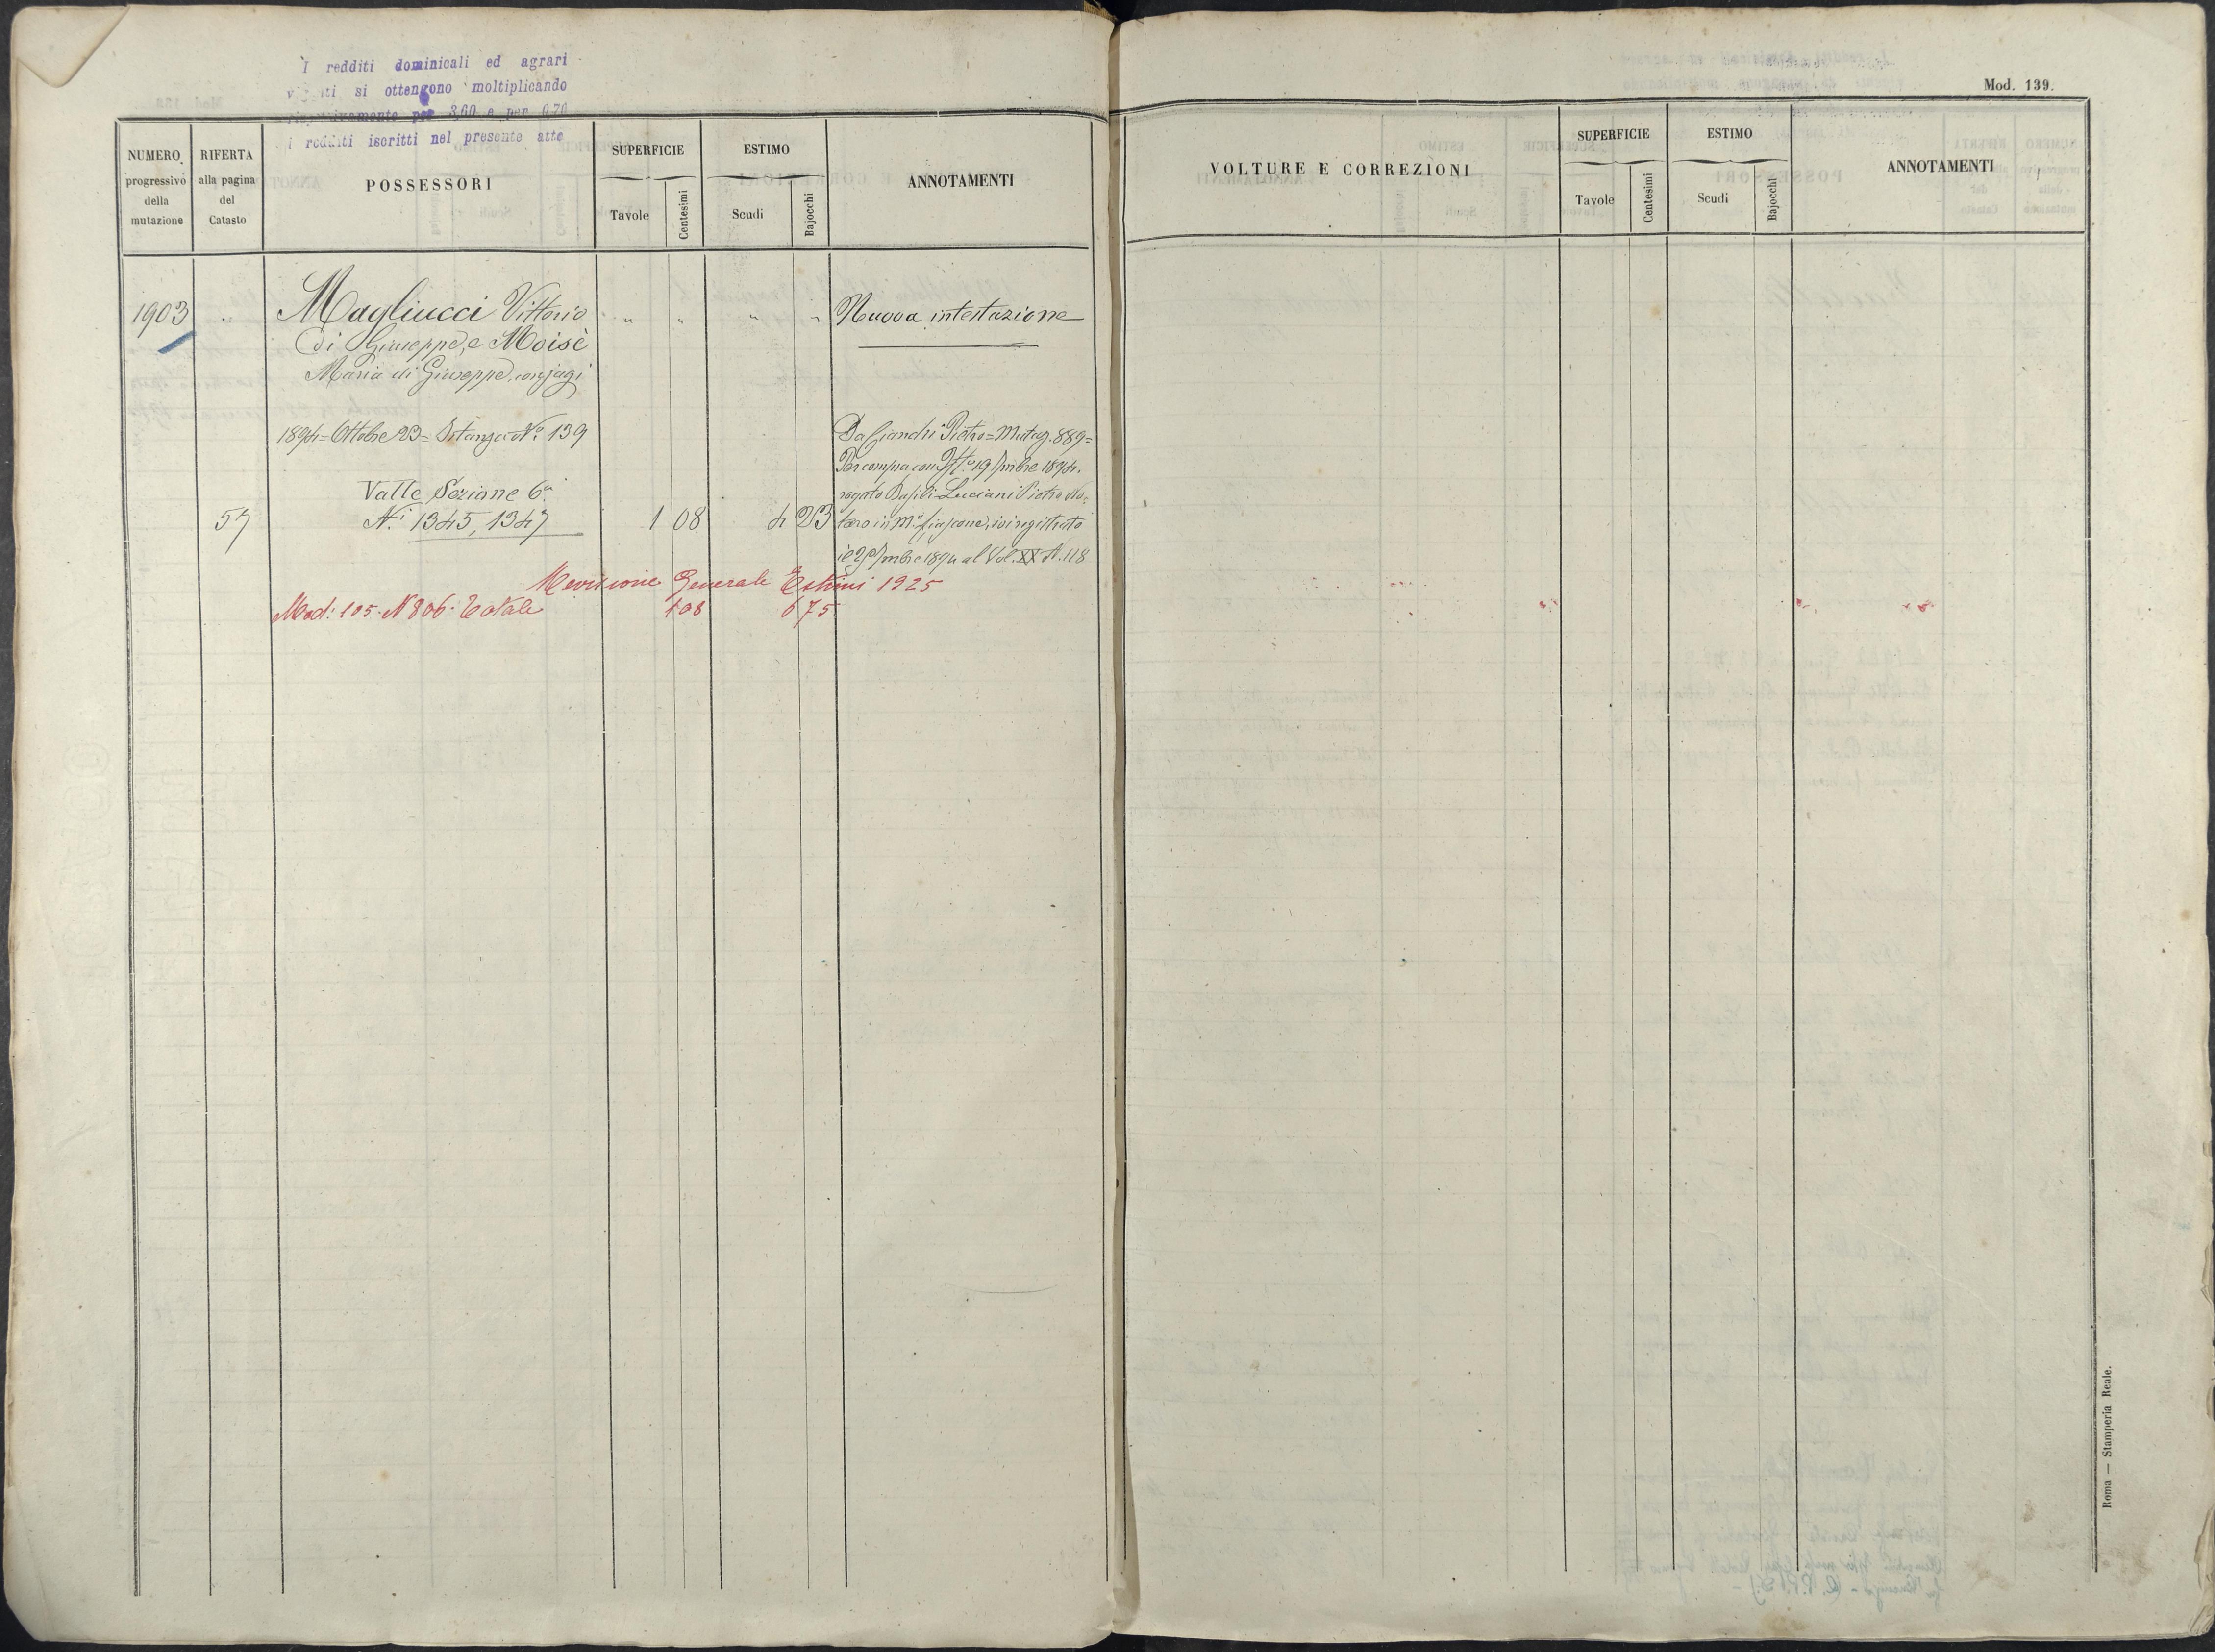 I redditi dominicali ed agrari
si ottengono moltiplicando
per 3,60 e per 0,70
i redditi iscritti nel presente atto
Mod. 139.
NUMERO progressivo della mutazione
RIFERTA alla pagina del Catasto
POSSESSORI
SUPERFICIE
Tavole
Centesimi
ESTIMO
Scudi
Bajocchi
ANNOTAMENTI
VOLTURE E CORREZIONI
SUPERFICIE
Tavole
Centesimi
ESTIMO
Scudi
Bajocchi
ANNOTAMENTI
1903 " Magliucci Vittorio " " " " Nuova intestazione
di Giuseppe, e Moisè
Maria di Giuseppe, conjugi
1894 = Ottobre 23 = Istanza N.º 139
Da Pietro = Mutaz. 889 =
Per compra con 19 1894.
rogato Basili-Luciani Pietro No-
Valle Sezione 6ª
57 N.i 1345, 1347 1 08 4 23
taro in ivi registrato
il 1894 al Vol. XX N. 118
Revisione Generale Estimi 1925
Mod: 105. N 806. Totale 1 08 6 75
Roma — Stamperia Reale.